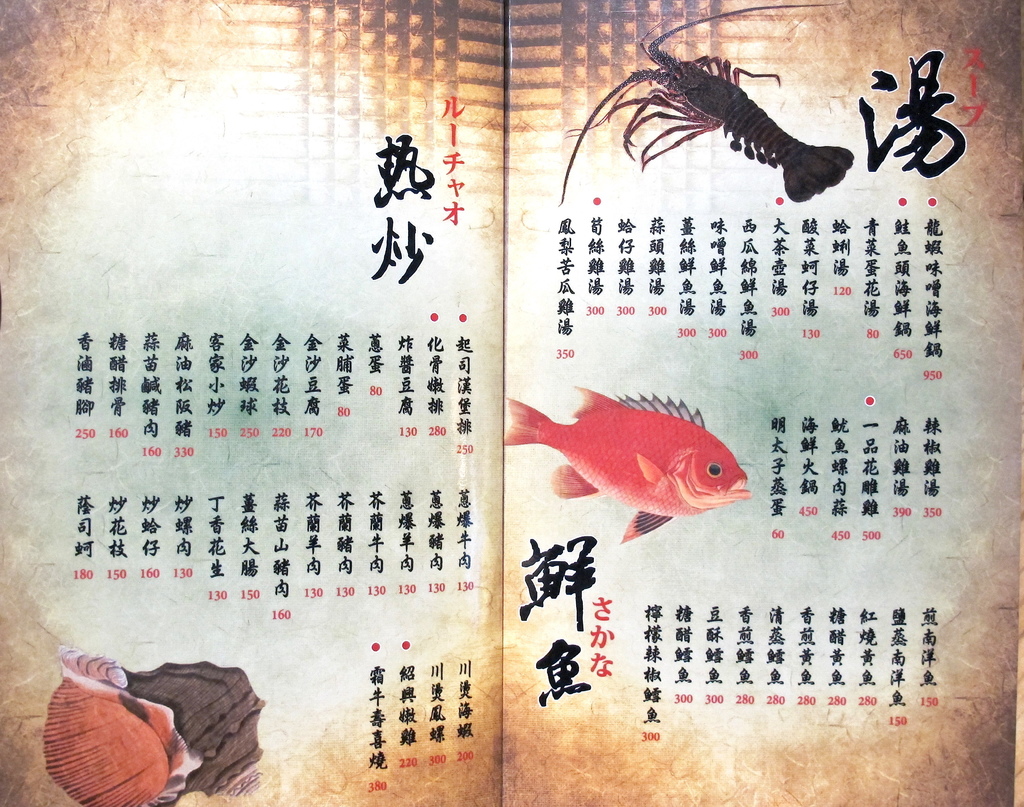 湯
スープ
龍蝦味噌海鮮鍋 950
鮭魚頭海鮮鍋 650
青菜蛋花湯 80
蛤蜊湯 120
酸菜蚵仔湯 130
大茶壺湯 300
西瓜綿鮮魚湯 300
味噌鮮魚湯 300
薑絲鮮魚湯 300
蒜頭雞湯 300
蛤仔雞湯 300
筍絲雞湯 300
鳳梨苦瓜雞湯 350
辣椒雞湯 350
麻油雞湯 390
一品花雕雞 500
魷魚螺肉蒜 450
海鮮火鍋 450
明太子蒸蛋 60
鮮魚
さかな
煎南洋魚 150
鹽蒸南洋魚 150
紅燒黃魚 280
糖醋黃魚 280
香煎黃魚 280
清蒸鱈魚 280
香煎鱈魚 280
豆酥鱈魚 300
糖醋鱈魚 300
檸檬辣椒鱈魚 300
熱炒
ルーチャオ
起司漢堡排 250
化骨嫩排 280
炸醬豆腐 130
蔥蛋 80
菜脯蛋 80
金沙豆腐 170
金沙花枝 220
金沙蝦球 250
客家小炒 150
麻油松阪豬 330
蒜苗鹹豬肉 160
糖醋排骨 160
香滷豬腳 250
蔥爆牛肉 130
蔥爆豬肉 130
蔥爆羊肉 130
芥蘭牛肉 130
芥蘭豬肉 130
芥蘭羊肉 130
蒜苗山豬肉 160
薑絲大腸 150
丁香花生 130
炒螺肉 130
炒蛤仔 160
炒花枝 150
蔭司蚵 180
川燙海蝦 200
川燙鳳螺 300
紹興嫩雞 220
霜牛壽喜燒 380